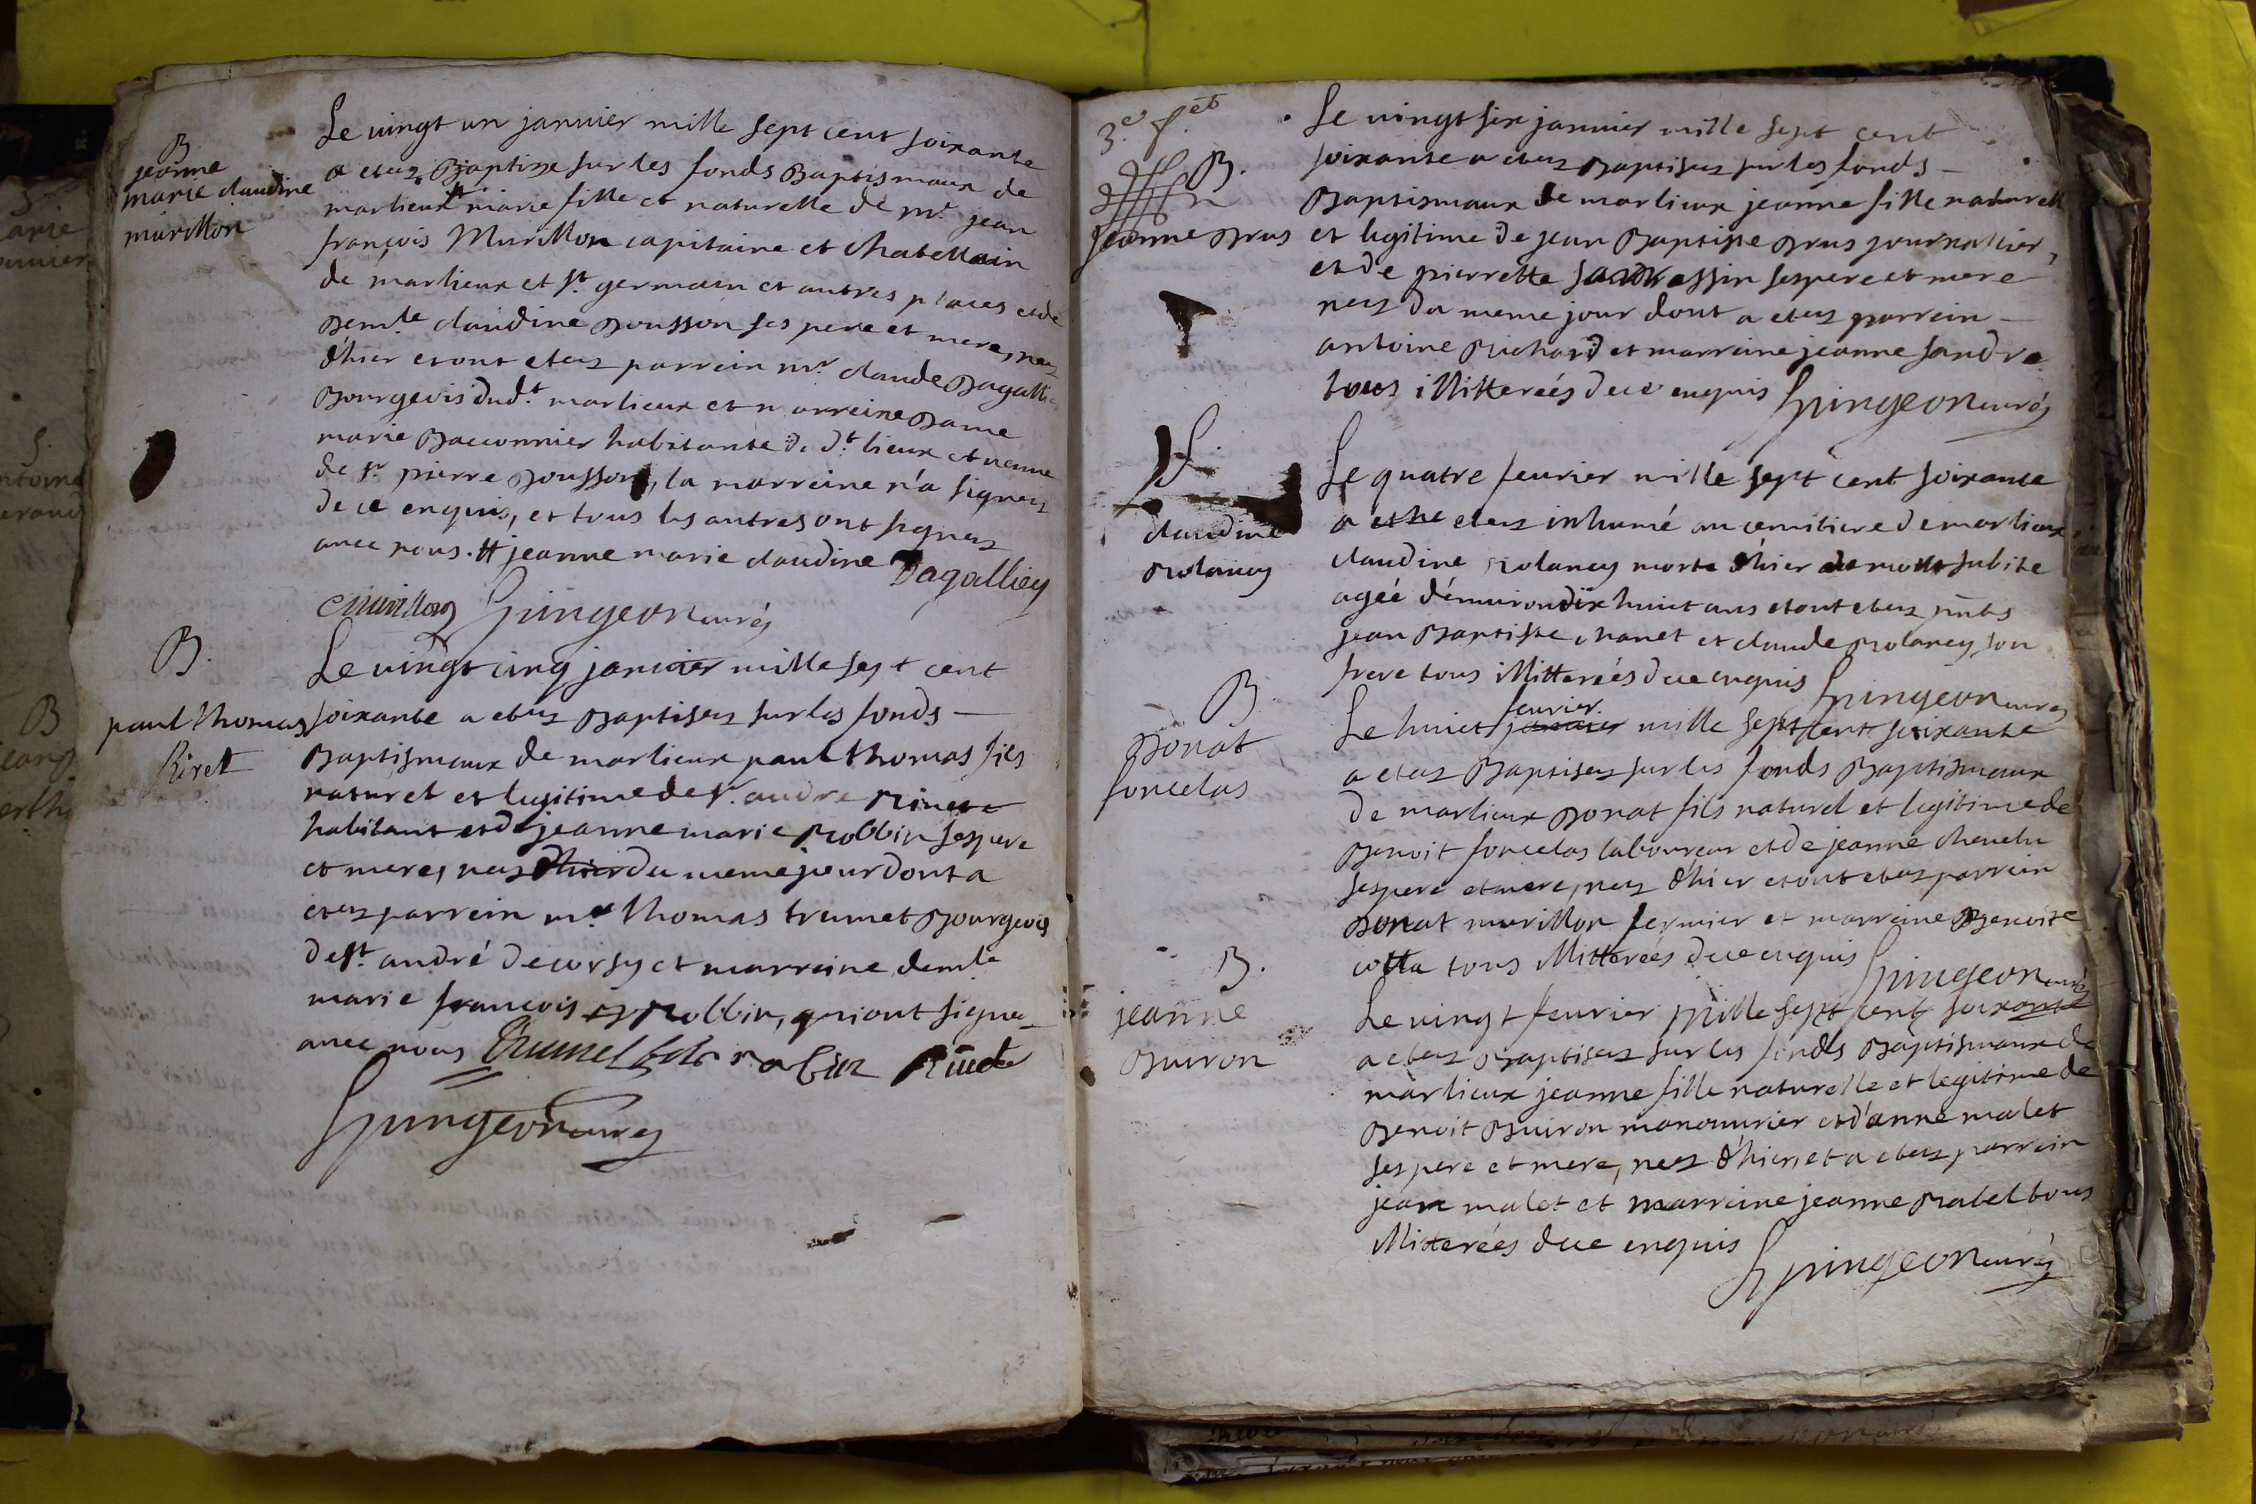 B
jeanne
marie claudine
murillon
Le vingt un janvier mille sept cent soixante
a etez Baptize sur les fonds Baptismaux de
marlieux # marie fille et naturelle de mr. jean
françois Murillon capitaine et chatellain
de marlieux et st. germain et autres places et de
Demle claudine Dousson ses pere et mere, nez
d'hier et ont etez parrein mr. claude Dagallie
Bourgeois dudt. marlieux et marreine Dame
marie Baconnier habitante du dt. lieux et veuve
de sr. pierre Dousson, la marreine n'a signez
de ce enquis, et tous les autres ont signez
avec nous. # jeanne marie claudine Dagalliey
Murillon Spingeon curéz
B.
paul thomas
Rivet
Le vingt cinq janvier mille sept cent
soixante a etez Baptisez sur les fonds
Baptismaux de marlieux paul thomas fils
naturel et legitime de sr. andre
habitant et de jeanne marie Robbin ses pere
et mere, nez d'hier du meme jour dont a
etez parrein mr. thomas trumet Bourgeois
de st. andré de corsy et marreine demle
marie françois Robbin, qui ont signe
avec nous Trumel robin
Spingeon curez
3e f.et
B.
jeanne Bras
Le vingt six janvier mille sept cent
soixante a etez Baptisez sur les fonds
Baptismaux de marlieux jeanne fille naturell
et legitime de jean Baptiste Bras journallier,
et de pierrette ses pere et mere
nez du meme jour dont a etez parrein
antoine Richard et marreine jeanne sandre
tous illitterées de ce enquis Spingeon curéz
S.
claudine
Rolancy
Le quatre fevrier mille sept cent soixante
a etez inhumé au cemitiere de marlieux
claudine Rolancy morte d'hier de mort subite
agéé d'environ dix huict ans et ont etez pnts
jean Baptiste chanet et claude Rolancy son
frere tous illitterées de ce enquis Spingeon curez
B
Donat
forcelas
Le huict janvier fevrier mille sept cent soixante
a etez Baptisez sur les fonds Baptismaux
de marlieux Donat fils naturel et legitime de
Benoit forcelas laboureur et de jeanne chevelu
ses pere et mere, nez d'hier et ont etez parrein
Donat murillon fermier et marreine Benoite
cotta tous illitterées de ce enquis Spingeon curéz
B.
jeanne
Buiron
Le vingt fevrier mille sept cent soixante
a etez Baptisez sur les fonds Baptismaux de
marlieux jeanne fille naturelle et legitime de
Benoit Buiron manouvrier et d'anne malet
ses pere et mere, nez d'hier, et a etez parrein
jean malet et marreine jeanne Rabel tous
illitterées de ce enquis Spingeon curéz